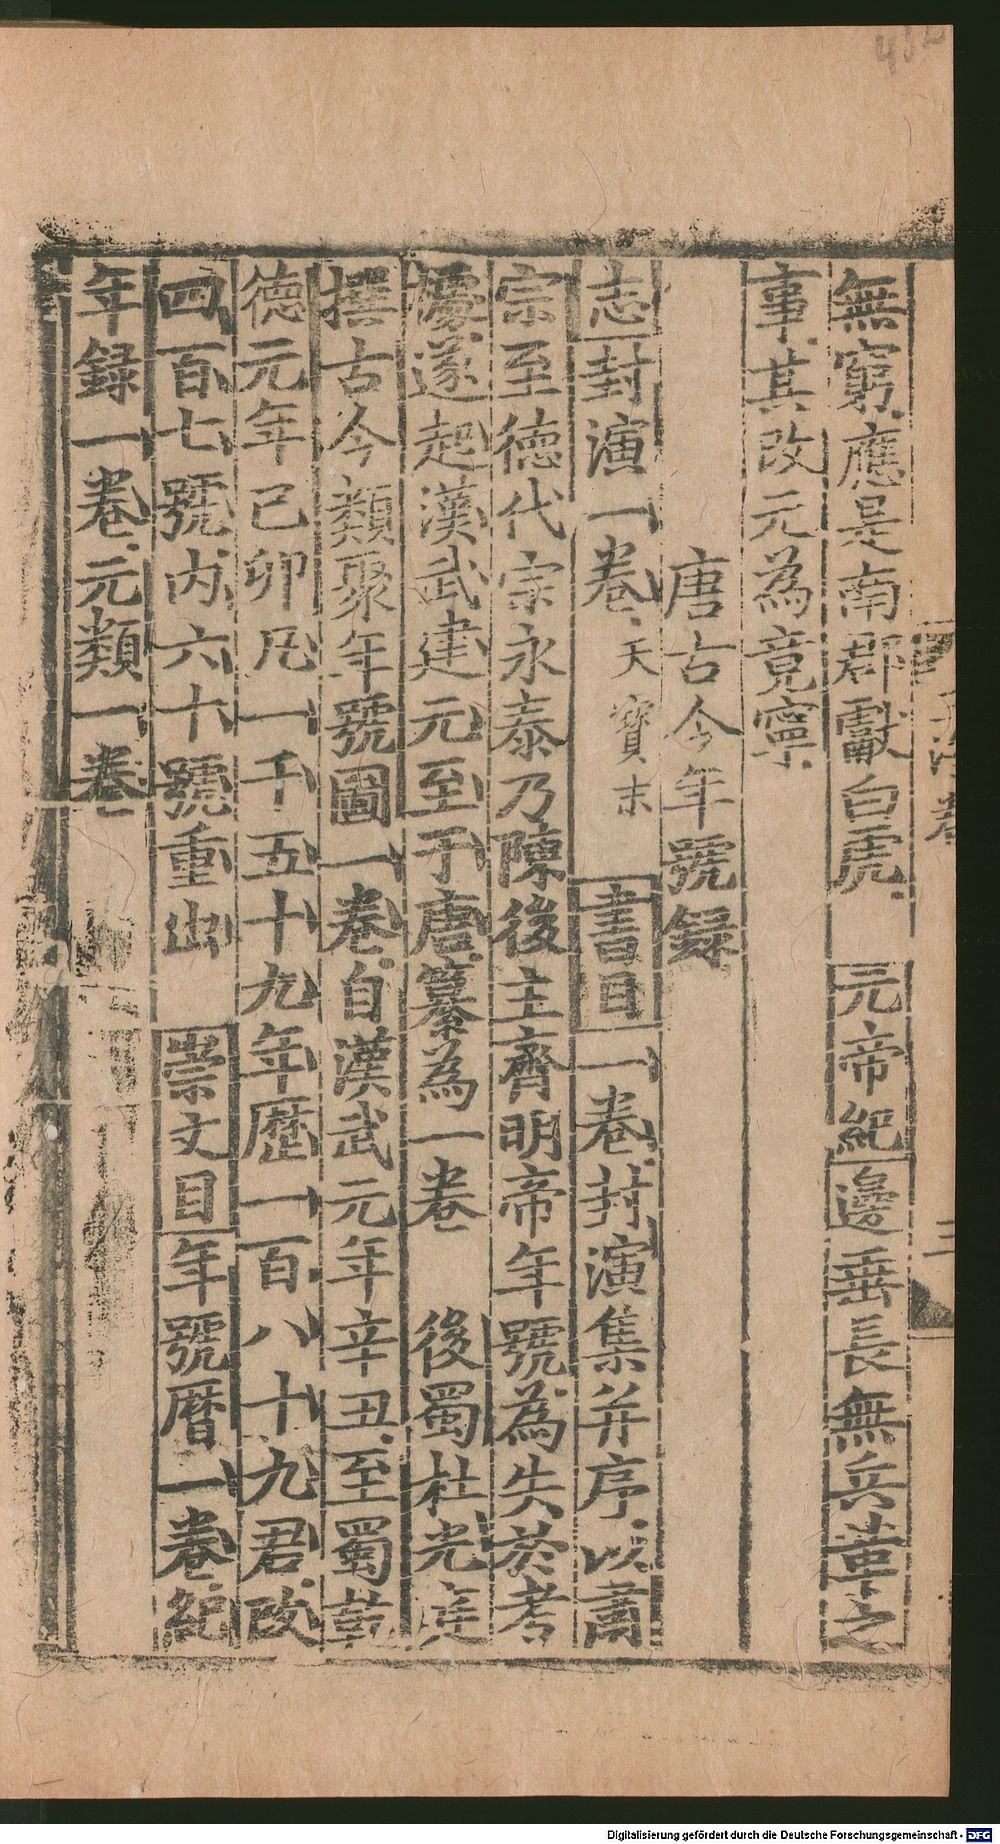 無窮應是南郡獻白虎　元帝紀邊垂長無兵革之
事其改元為竟寧
唐古今年號錄
志封演一卷天寶末　書目一卷封演集并序以肅
宗至德代宗永泰乃陳後主齊明帝年號為失於考
據遂起漢武建元至于唐纂為一卷　後蜀杜光庭
撰古今類聚年號圖一卷自漢武元年辛丑至蜀乾
德元年己卯凡一千五十九年歷一百八十九君改
四百七號內六十號重出　崇文目年號曆一卷紀
年録一卷元類一卷
三
Digitalisierung gefördert durch die Deutsche Forschungsgemeinschaft - DFG